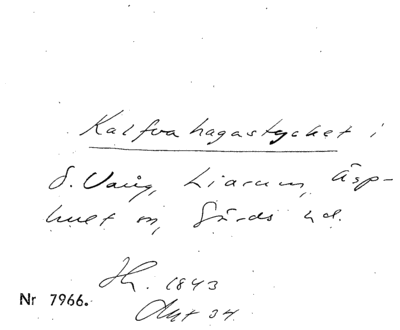 Kalfvahagastycket i
S. Vång, Liarum, Äsp-
huet m, Gärds hd.
Hh. 1843
Akt 34
Nr 7966.